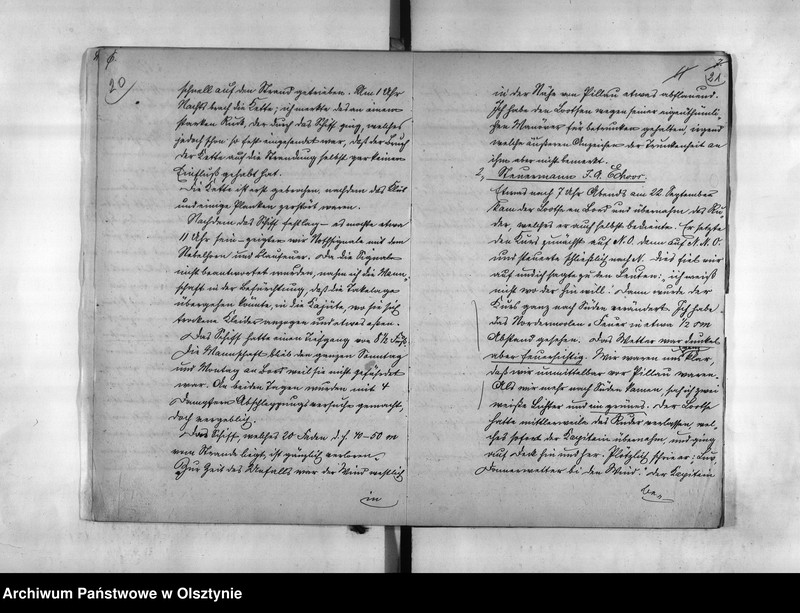 20
schnell auf den Strand getrieben. Um 1 Uhr
Nachts brach die Kette; ich merkte das an einem
starken Ruck, der durch das Schiff ging, welches
jedoch schon so fest eingesandet war, daß der Bruch
der Kette auf die Strandung selbst gar keinen
Einfluß gehabt hat.
Die Kette ist erst gebrochen, nachdem das
und einige Planken zerstört waren.
Nachdem das Schiff festlag – es mochte etwa
11 Uhr sein – zeigten wir Nothsignale mit dem
Nebelhorn und Blaufeuer. Da die Signale
nicht beantwortet wurden, nahm ich die Mann-
schaft in der Befürchtung, daß die Takelage
übergehen könnte, in die Kajüte, wo sie sich
trockene Kleider anzogen und etwas aßen.
Das Schiff hatte einen Tiefgang von 8½ Fuß.
Die Mannschaft blieb den ganzen Sonntag
und Montag an Bord, weil sie nicht gefährdet
war. An beiden Tagen wurden mit 4
Dampfern Abschleppungsversuche gemacht,
doch vergeblich.
Das Schiff, welches 20 Faden d. h. 40-50 m
vom Strande liegt, ist gänzlich verloren.
Zur Zeit des Unfalls war der Wind westlich
in
21
in der Nähe von Pillau etwas abflauend.
Ich habe den Lootsen wegen seiner eigenthümli-
chen Manöver für betrunken gehalten, irgend
welche äußeren Anzeichen der Trunkenheit an
ihm aber nicht bemerkt.
2, Steuermann J. A. Echoor.
Etwas nach 7 Uhr Abends am 22 September
kam der Lootse an Bord und übernahm das Ru-
der, welches er auch selbst bediente. Er setzte
den Kurs zunächst auf N.O. dann auf N.N.O.
und steuerte schließlich nach N. Dies fiel mir
auf und ich sagte zu den Leuten: „ich weiß
nicht wo der hin will.“ Dann wurde der
Kurs ganz nach Süden verändert. Ich habe
das Nordermolen-Feuer in etwa ½ sm
Abstand gesehen. Das Wetter war dunkel
aber feuersichtig. Wir waren uns ganz klar,
daß wir unmittelbar vor Pillau waren.
Als wir mehr nach Süden kamen, sah ich zwei
weiße Lichter und ein grünes. Der Lootse
hatte mittlerweile das Ruder verlassen, wel-
ches sofort der Kapitein übernahm, und ging
auf Deck hin und her. Plötzlich schrie er: Luv,
Donnerwetter bei den Wind. Der Kapitein
be-
Archiwum Państwowe w Olsztynie